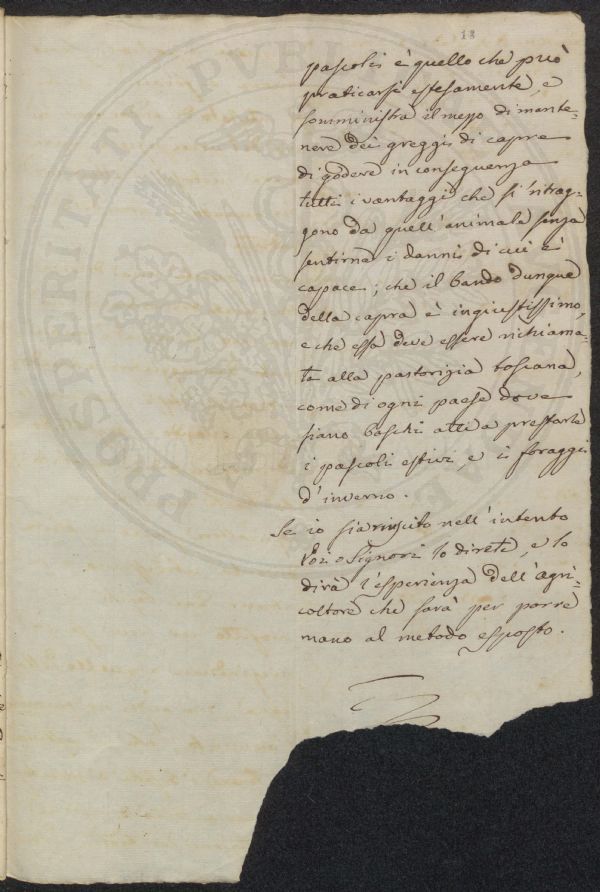 13
pascoli è quello che può
praticarsi estesamente, e
somministra il mezzo di mante=
nere dei greggi di capre
di godere in conseguenza
tutti i vantaggi che si ritrag=
gono da quell'animale senza
sentirne i danni di cui è
capace; che il bando dunque
della capra è ingiustissimo,
e che essa deve essere richiama=
ta alla pastorizia toscana,
come di ogni paese dove
siano boschi atti a prestarle
i pascoli estivi, e i foraggi
d'inverno.
Se io sia riuscito nell'intento
Voi o Signori lo direte, e lo
dirà l'esperienza dell'agri=
coltore che sarà per porre
mano al metodo esposto.
PROSPERITATI PUBL